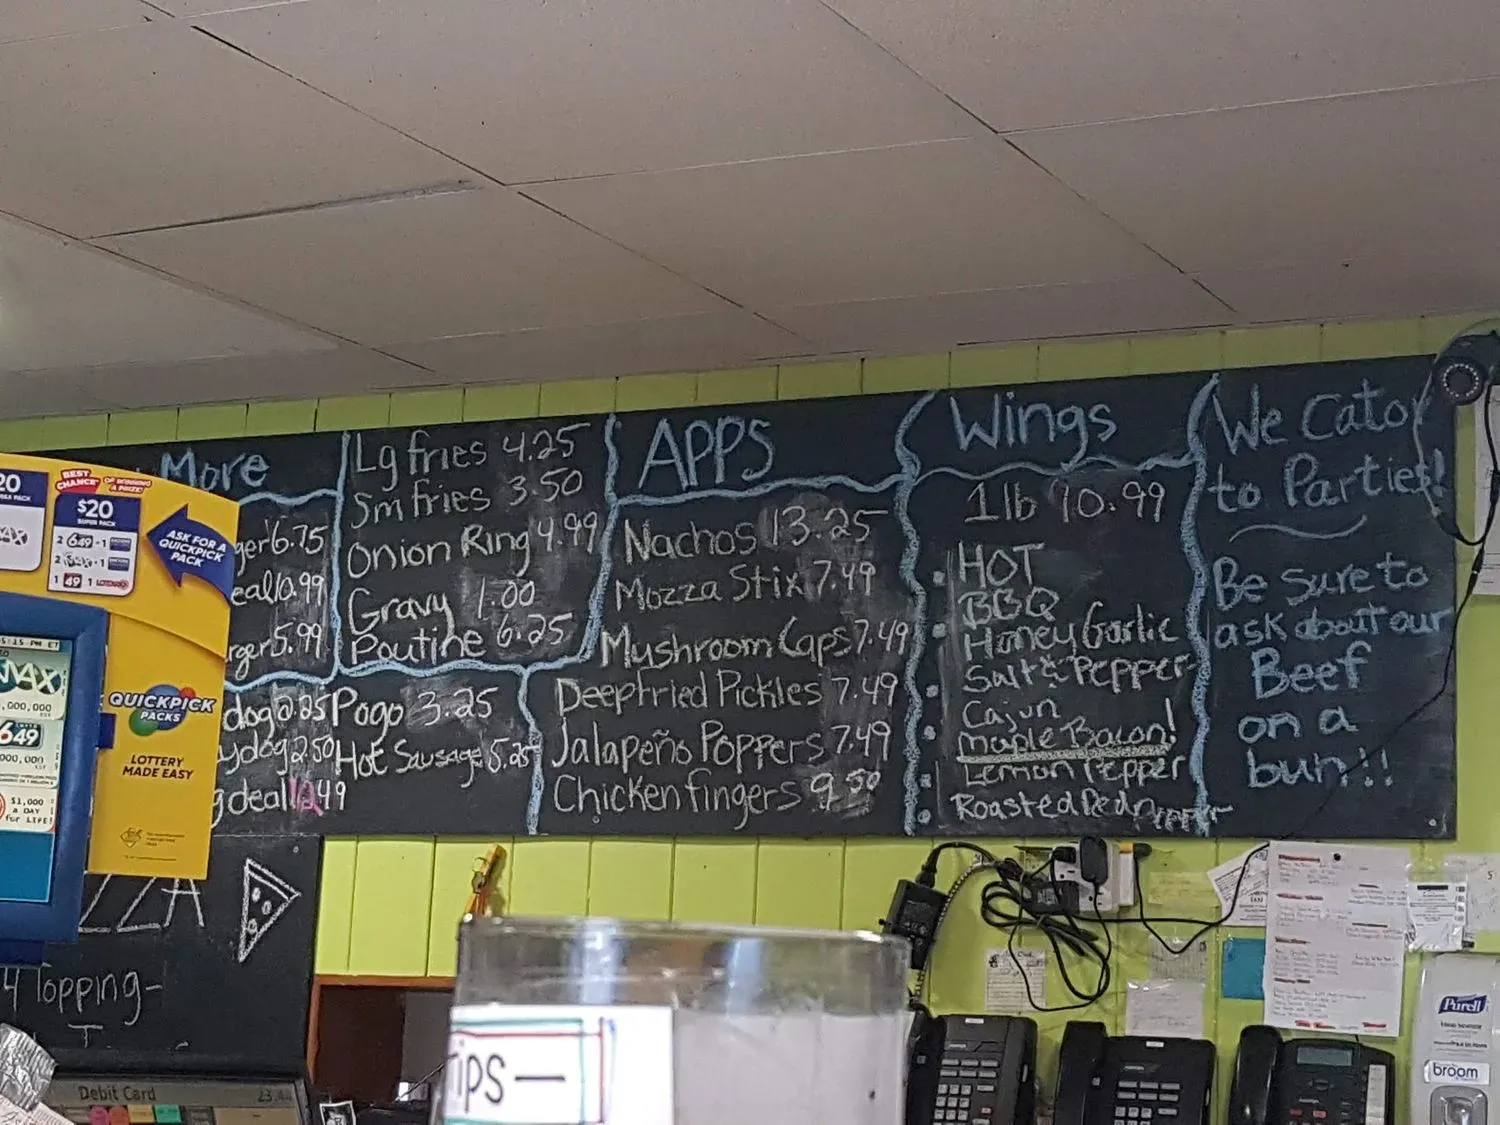 More
ger 6.75
eal 10.99
rger 5.99
dog 2.25
ydog 2.50
gdeal 12.49
Lg fries 4.25
Sm fries 3.50
Onion Ring 4.99
Gravy 1.00
Poutine 6.25
Pogo 3.25
Hot Sausage 5.25
APPS
Nachos 13.25
Mozza Stix 7.49
Mushroom Caps 7.49
Deepfried Pickles 7.49
Jalapeño Poppers 7.49
Chicken fingers 9.50
Wings
1lb 10.99
HOT
BBQ
Honey Garlic
Salt & Pepper
Cajun
Maple Bacon!
Lemon Pepper
Roasted Red Pepper
We Cator
to Parties!
Be Sure to
ask about our
Beef
on a
bun!!
20
BEST CHANCE OF WINNING A PRIZE
$20
SUPER PACK
2 649 + 1
1 49 1
ASK FOR A
QUICKPICK
PACK
QUICKPICK
PACKS
LOTTERY
MADE EASY
5:15 PM ET
MAX
,000,000
649
000,000
$1,000
a DAY
for LIFE!
ZZA
4 Topping-
Debit Card
23.44
Tips-
Purell
broom